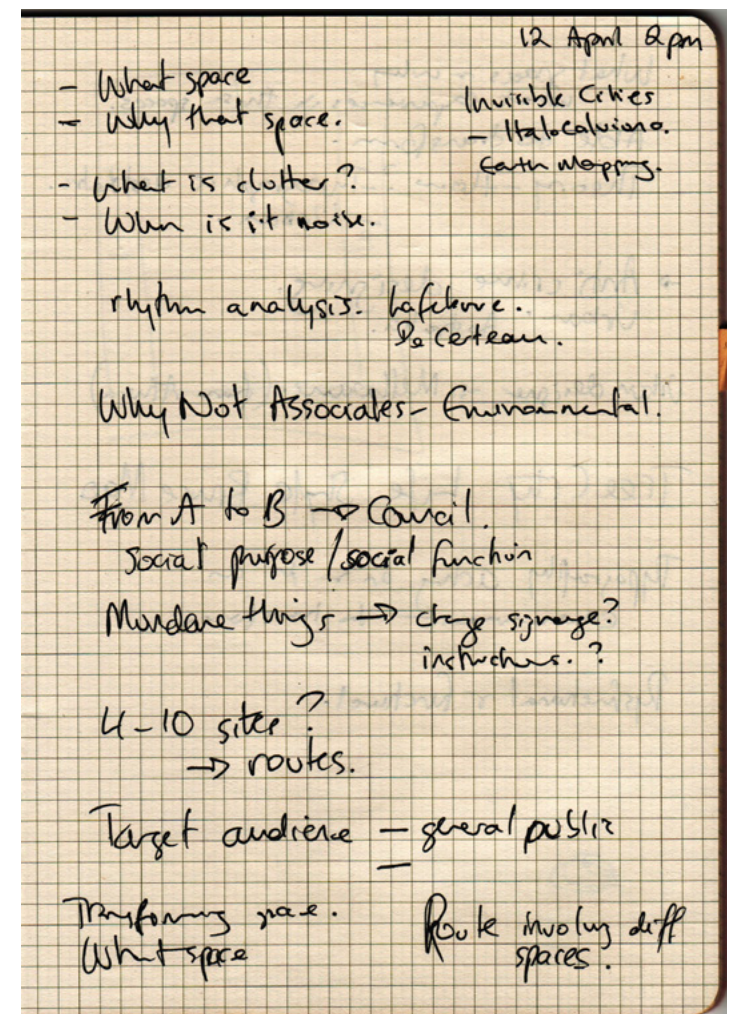 12 April 2pm
- What space
- Why that space.
Invisible Cities
- Italo Calviano.
Earth Mapping.
- What is clutter?
- When is it noise.
rhythm analysis. Lafebvre.
De Certeau.
Why Not Associates - Environmental.
From A to B → Council.
social purpose / social function
Mundane things → change signage?
instructions. ?
4-10 sites?
→ routes.
Target audience - general public
-
Transforming space.
What space
Route involving diff
spaces.